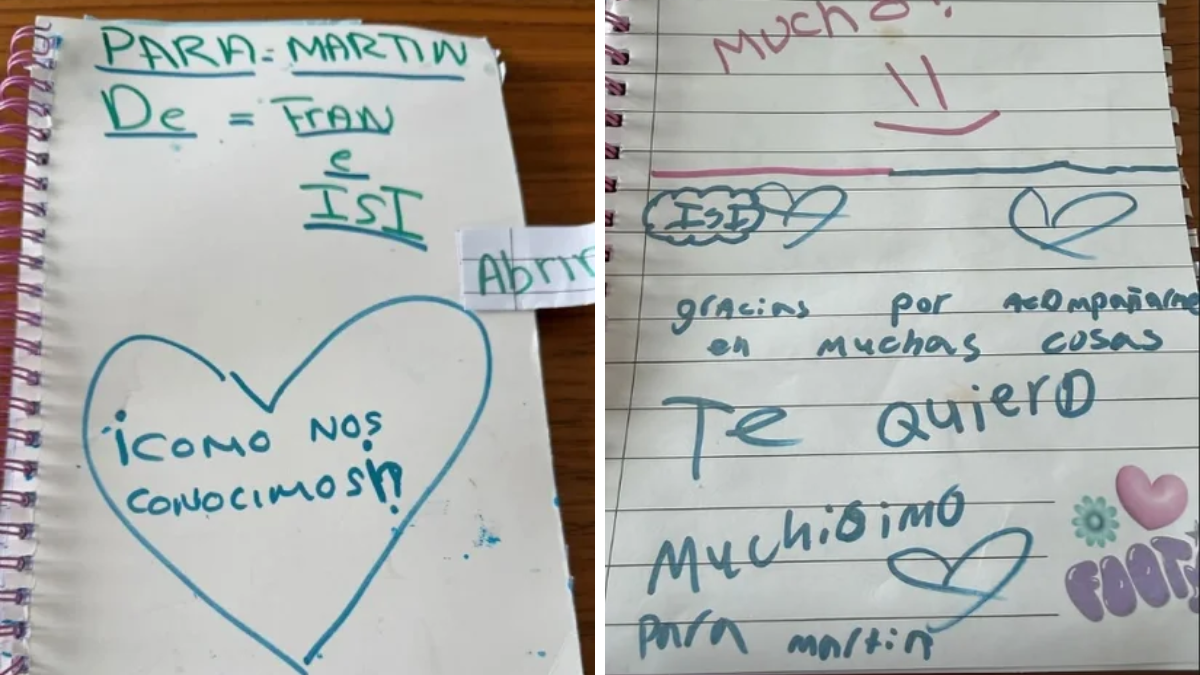 PARA = MARTIN
De = FrAN
e
ISI
Abrir
¡COMO NOS
CONOCIMOS!?
MUCHO!
ISI
grACias por AcompañArme
en muchas cosas
Te quiero
Muchisimo
para martin
FOOT